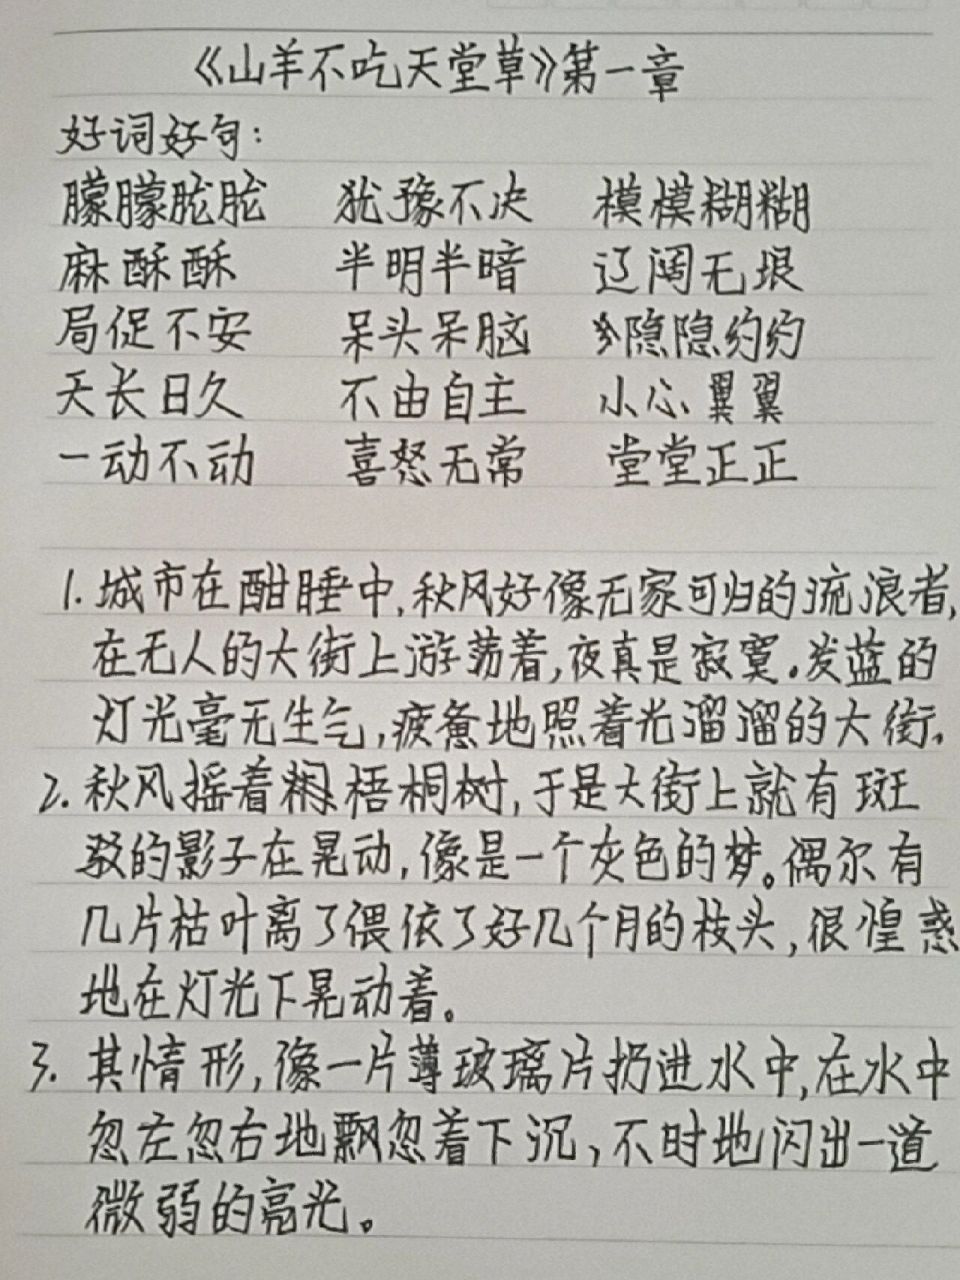 《山羊不吃天堂草》第一章
好词好句：
朦朦胧胧 犹豫不决 模模糊糊
麻酥酥 半明半暗 辽阔无垠
局促不安 呆头呆脑 隐隐约约
天长日久 不由自主 小心翼翼
一动不动 喜怒无常 堂堂正正
1. 城市在酣睡中,秋风好像无家可归的流浪者,
在无人的大街上游荡着,夜真是寂寞.发蓝的
灯光毫无生气,疲惫地照着光溜溜的大街.
2. 秋风摇着梧桐树,于是大街上就有斑
驳的影子在晃动,像是一个灰色的梦。偶尔有
几片枯叶离了偎依了好几个月的枝头,很惶惑
地在灯光下晃动着。
3. 其情形,像一片薄玻璃片扔进水中,在水中
忽左忽右地飘忽着下沉,不时地闪出一道
微弱的亮光。